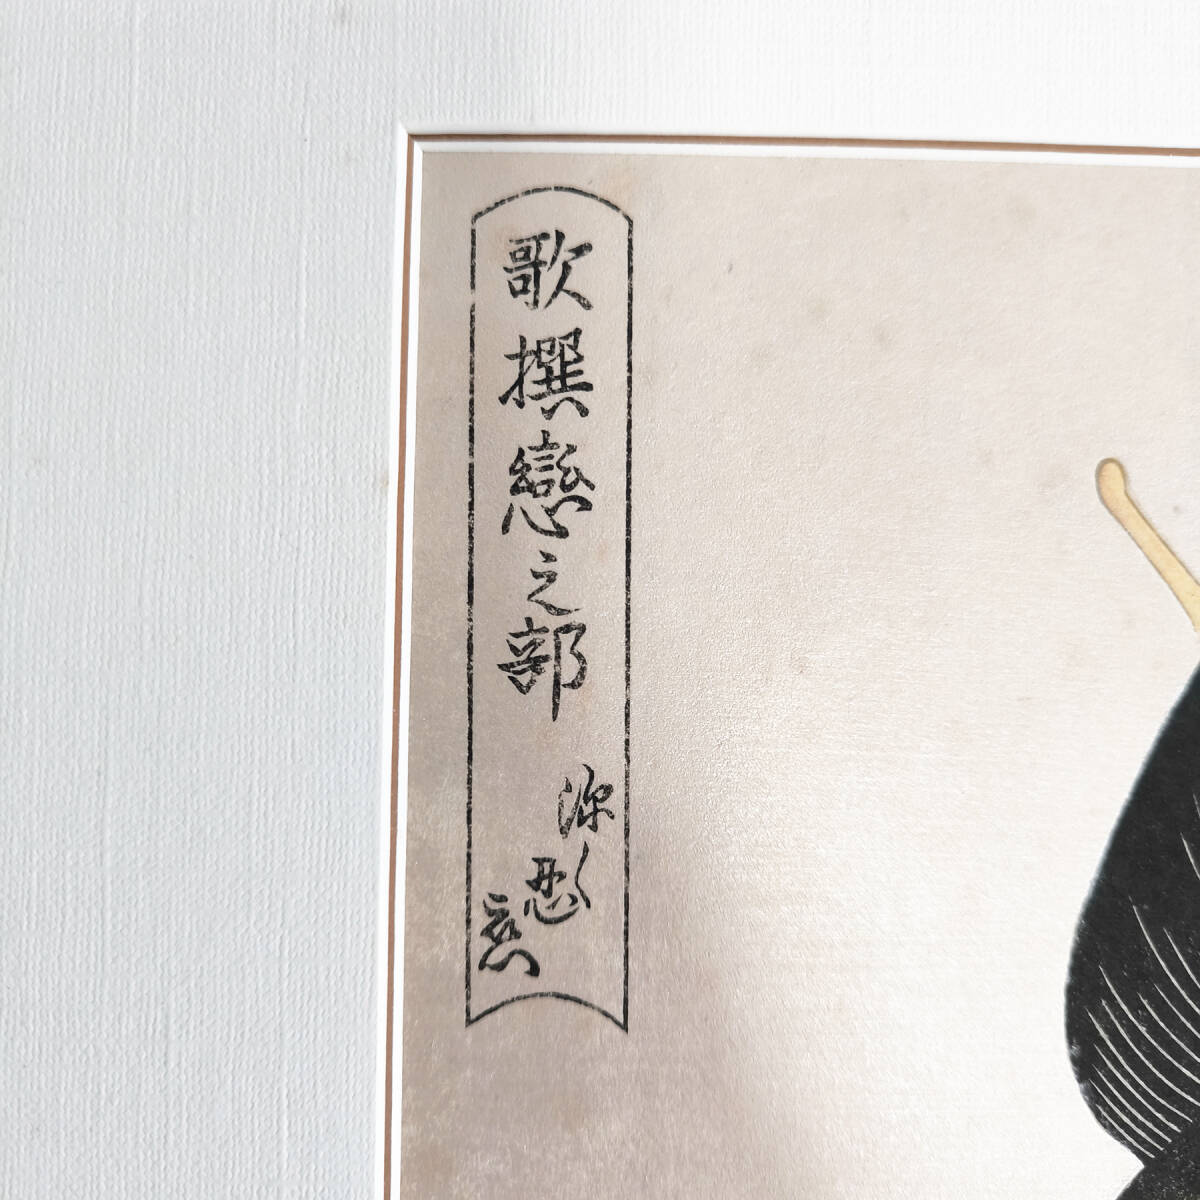 歌撰戀之部
深く忍恋